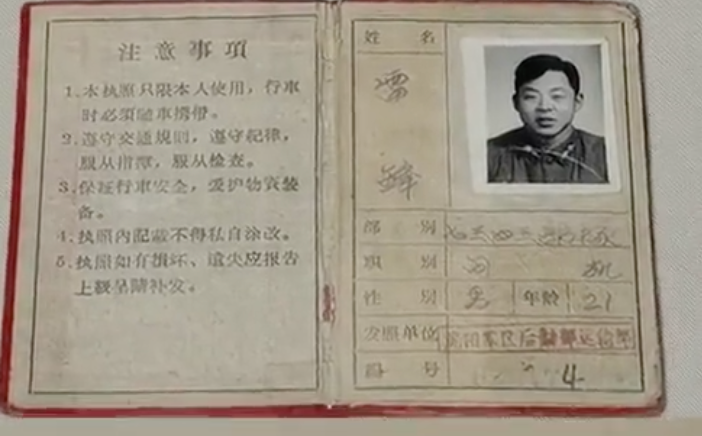 注意事項
1.本执照只限本人使用，行車
时必須随車携带。
2.遵守交通規则，遵守紀律，
服从指揮，服从检查。
3.保証行車安全，爱护物資装
备。
4.执照內記載不得私自涂改。
5.执照如有損坏、遺失应报告
上級呈請补发。
姓 名 雷 鋒
部 別
职 別 司 机
性 別 男 年龄 21
发照单位 沈阳軍区后勤部运輸部
号 4